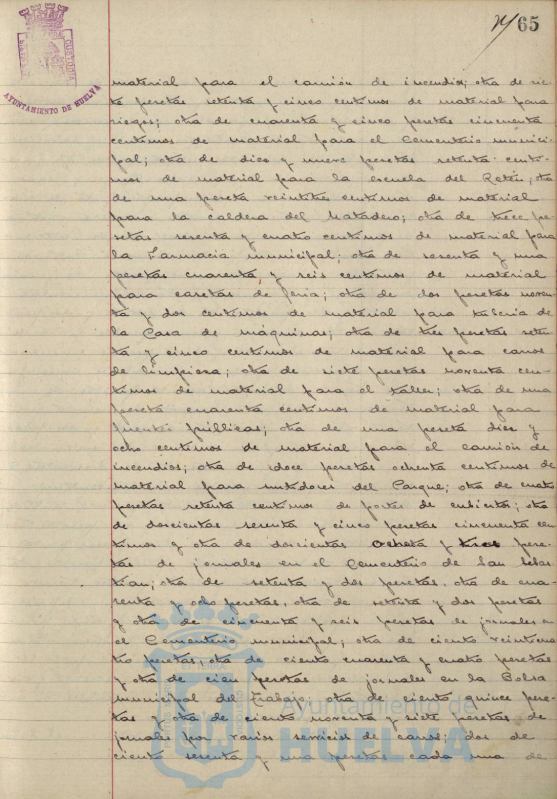 65
AYUNTAMIENTO DE HUELVA
material para el camión de incendios; otra de sie
te pesetas setenta y cinco centimos de material para
riegos; otra de cuarenta y cinco pesetas cincuenta
centimos de material para el Cementerio munici-
pal; otra de diez y nueve pesetas setenta centi-
mos de material para la escuela del; otra
de una peseta veintitres centimos de material
para la caldera del Matadero; otra de trece pe-
setas sesenta y cuatro centimos de material para
la Farmacia municipal; otra de sesenta y una
pesetas cuarenta y seis centimos de material
para casetas de feria; otra de dos pesetas noven
ta y dos centimos de material para tuberia de
la Casa de máquinas; otra de tres pesetas seten
ta y cinco centimos de material para carros
de limpieza; otra de siete pesetas noventa cen-
timos de material para el taller; otra de una
peseta cuarenta centimos de material para
fuentes públicas; otra de una peseta diez y
ocho centimos de material para el camión de
incendios; otra de doce pesetas ochenta centimos de
material para surtidores del Parque; otra de cuatro
pesetas setenta centimos de portes de cubiertas; otra
de doscientas sesenta y cinco pesetas cincuenta cen
timos y otra de doscientas ochenta y tres pese-
tas de jornales en el Cementerio de San Sebas
tian; otra de setenta y dos pesetas, otra de cua-
renta y ocho pesetas, otra de setenta y dos pesetas
y otra de cincuenta y seis pesetas de jornales en
el Cementerio municipal; otra de ciento veinticua
tro pesetas, otra de ciento cuarenta y cuatro pesetas
y otra de cien pesetas de jornales en la Bolsa
municipal del Trabajo; otra de ciento quince pese-
tas y otra de ciento noventa y siete pesetas de
jornales por varios servicios de carros; dos de
ciento sesenta y una pesetas cada una de
Ayuntamiento de
HUELVA